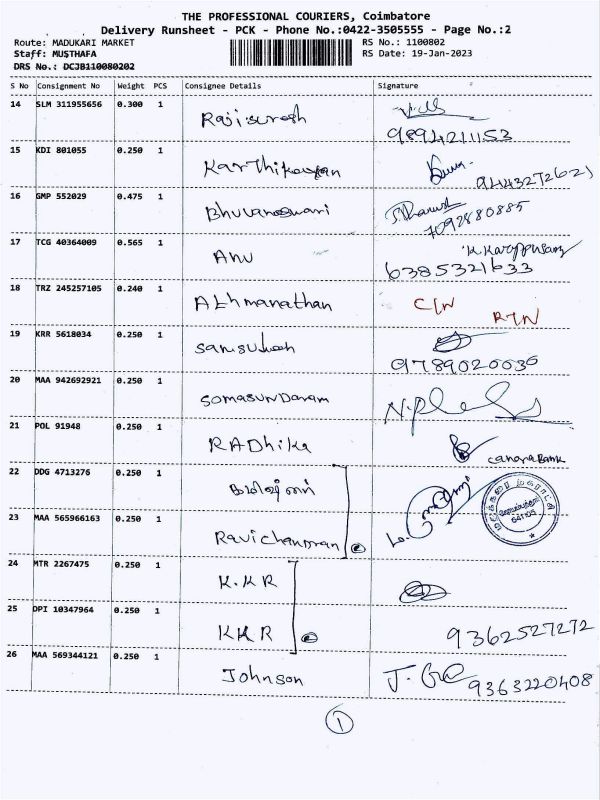 THE PROFESSIONAL COURIERS, Coimbatore
Delivery Runsheet - PCK - Phone No.:0422-3505555 - Page No.:2
Route: MADUKARI MARKET RS No.: 1100802
Staff: MUSTHAFA RS Date: 19-Jan-2023
DRS No.: DCJB110080202
S No Consignment No Weight PCS Consignee Details Signature
14 SLM 311955656 0.300 1 Raji.suresh
9894211153
15 KDI 801055 0.250 1 Karthikeyan
9443272621
16 GMP 552029 0.475 1 Bhuvaneswari
7092880885
17 TCG 40364009 0.565 1 Anu K.Karuppusamy
6385321633
18 TRZ 245257105 0.240 1 Athmanathan C/N
RTN
19 KRR 5618034 0.250 1
9789020036
20 MAA 942692921 0.250 1 SOMASUNDARAM
21 POL 91948 0.250 1 RADhika
canara Bank
22 DDG 4713276 0.250 1
23 MAA 565966163 0.250 1 Ravichandran
24 MTR 2267475 0.250 1 K.KR
25 DPI 10347964 0.250 1 KKR
9362527272
26 MAA 569344121 0.250 1 Johnson
9363220408
1